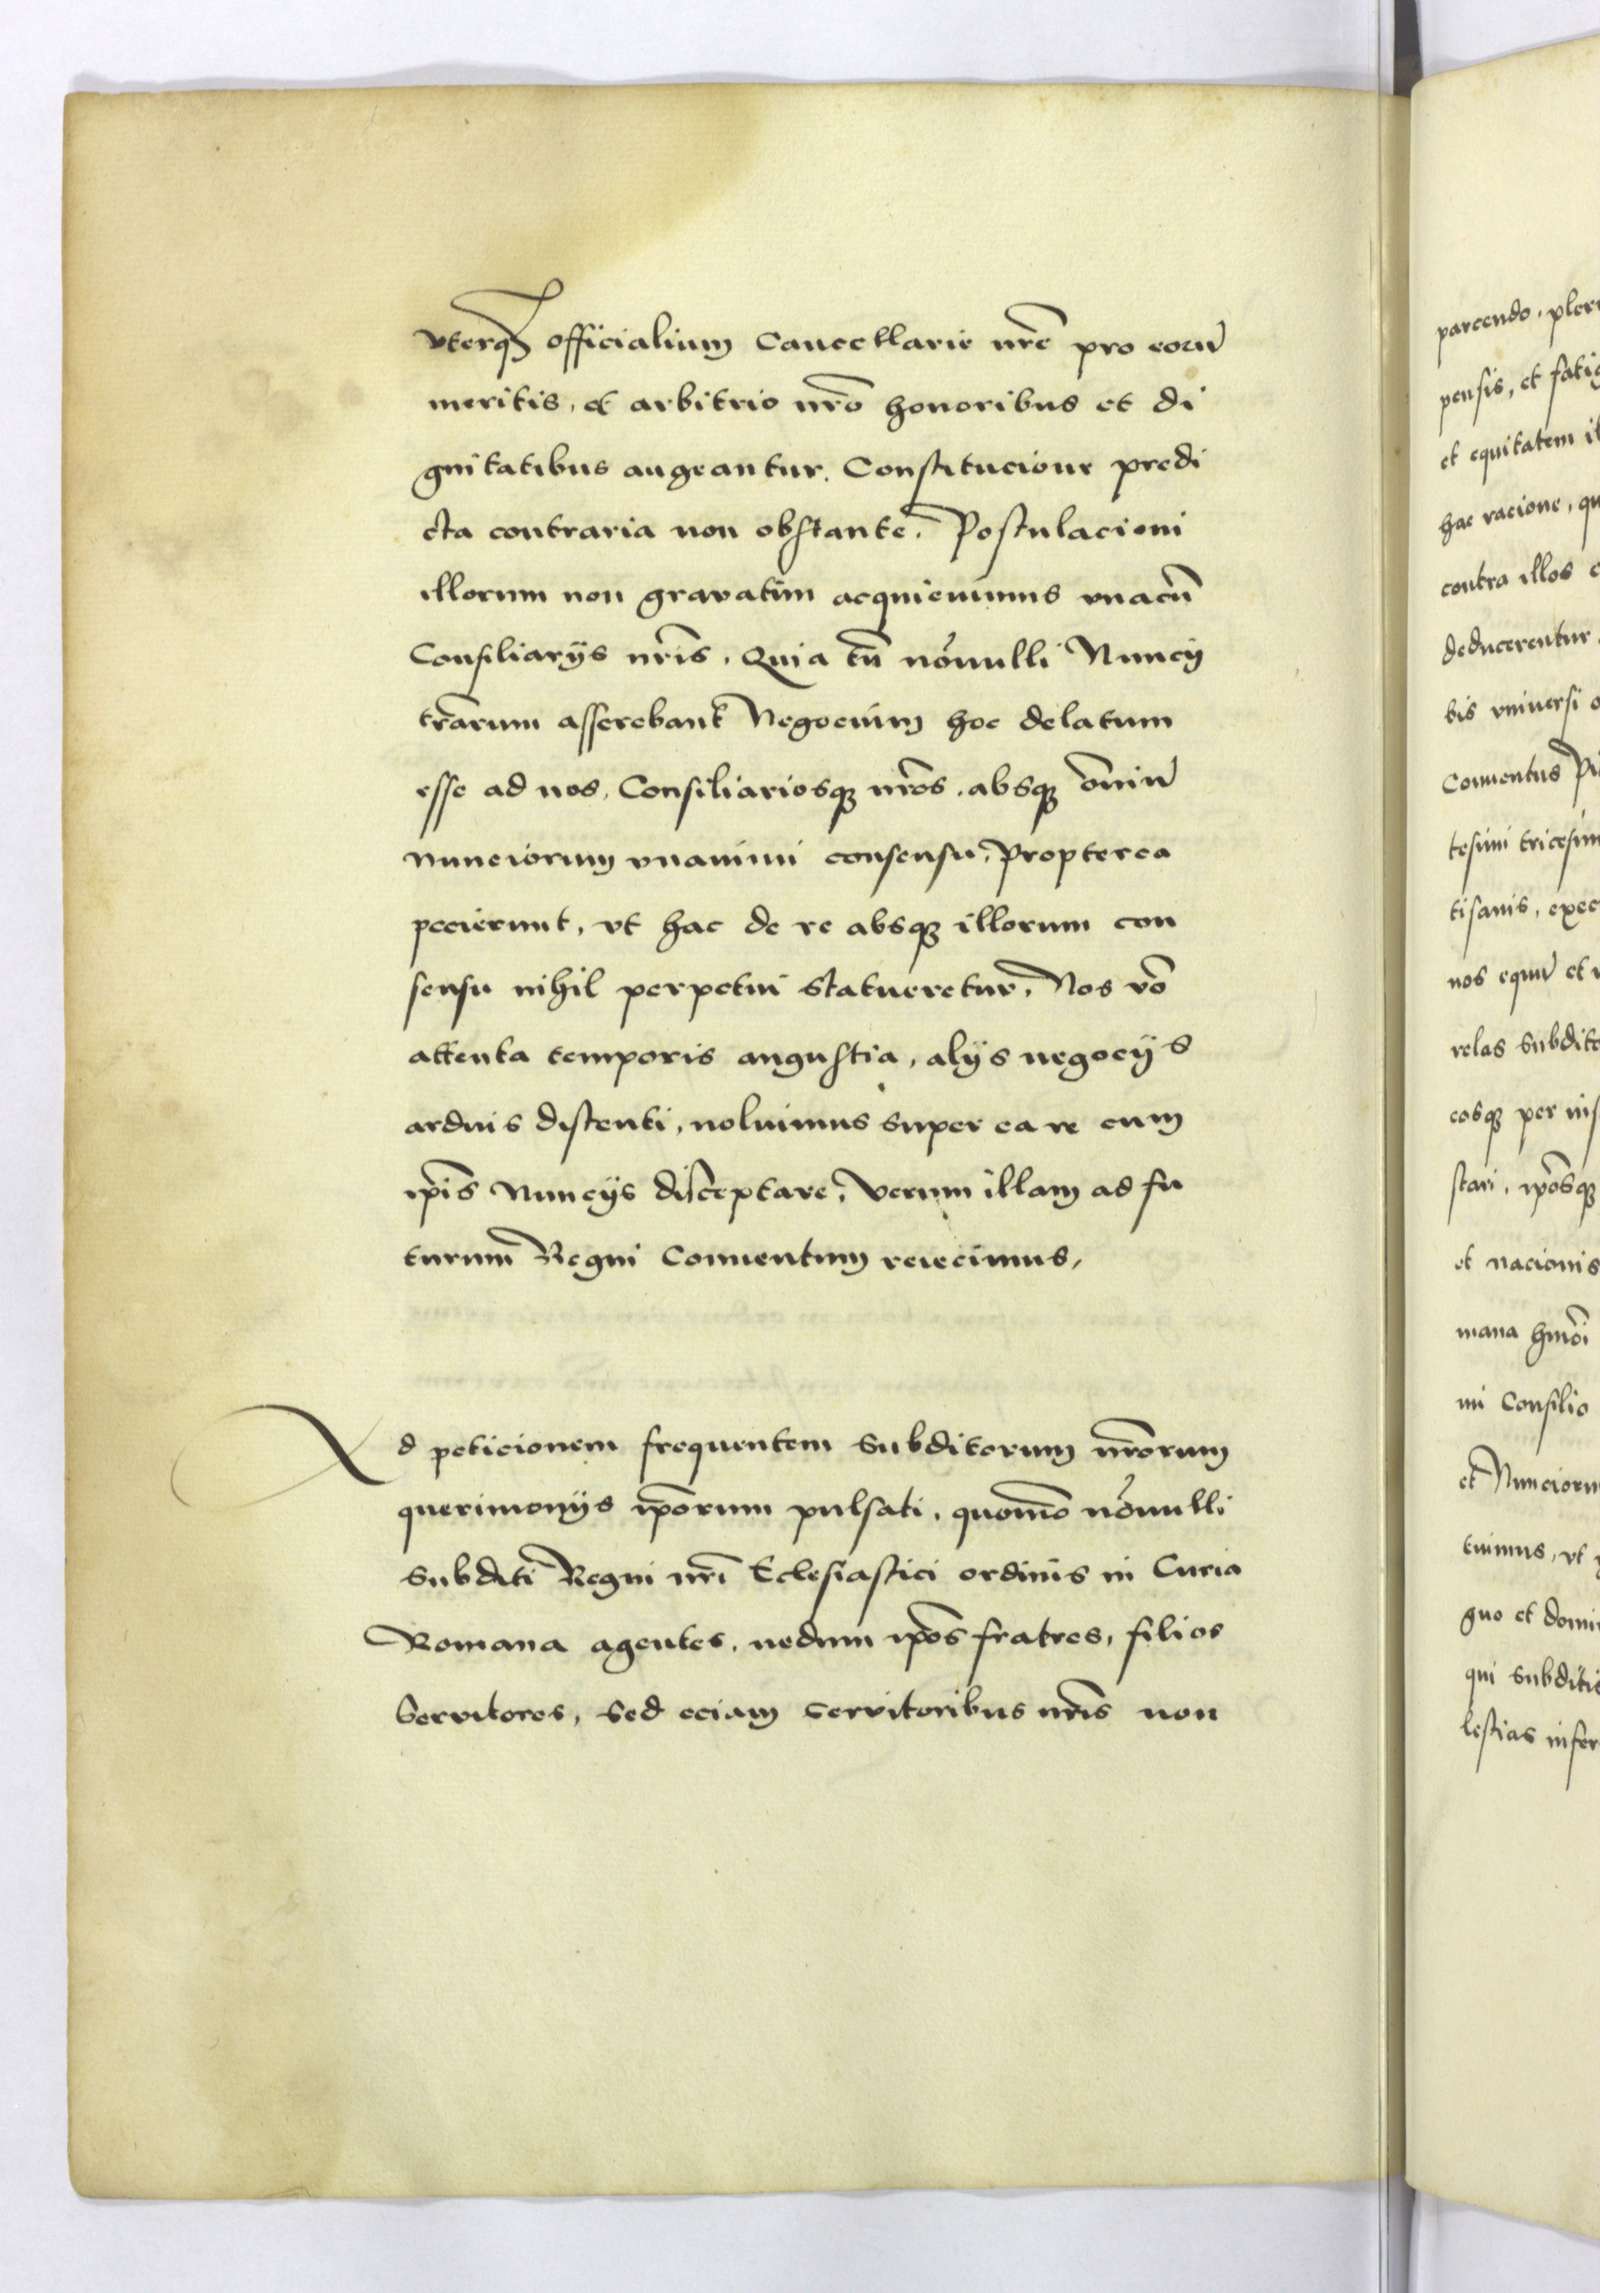 vterq₃ officialium Cancellarie nr̄e pro eorū
meritis, et arbitrio nr̄o honoribus et di
gnitatibus augeantur. Constitucione predi
cta contraria non obstante. Postulacioni
illorum non gravatim acquievimus vnacū
Consiliarijs nr̄is. Quia tn̄ nōnulli Nuncij
trarum asserebant Negocium hoc delatum
esse ad nos, Consiliariosq₃ nr̄os, absq₃ om̄iū
nunciorum vnanimi consensu, Propterea
pecierunt, vt hac de re absq₃ illorum con
sensu nihil perpetui statueretur, Nos vō
attenta temporis angustia, alijs negocijs
arduis distenti, noluimus super ea re cum
ip̄is Nuncijs disceptare, Verum illam ad fu
turum Regni Conventum reiecimus,
Ad peticionem frequentem Subditorum nr̄orum
querimonijs ip̄orum pulsati, quom̄o nōnulli
Subditi Regni nr̄i Eclesiastici ordinis in Curia
Romana agentes, nedum ip̄os fratres, filios
Servitores, Sed eciam Servitoribus nr̄is non
parcendo, pler
pensis, et fatig
et equitatem il
hac racione, qu
contra illos c
deducerentur
bis vniuersi o
Conuentus Pi
tesimi tricesim
tisanis, exec
nos equū et
relas Subdito
eosq₃ per nis
stari, ip̄osq₃
et nacionis
mana hmōi
ni Consilio
et Nunciorum
tuimus, vt
gno et domi
qui Subditis
lestias infer